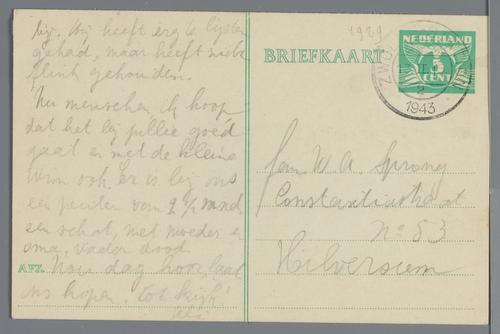 bij. Hij heeft erg te lijden
gehad, maar heeft zich
flink gehouden.
Nu menschen ik hoop
dat het bij jullie goed
gaat en met de kleine
ook, er is bij ons
een peuter van 2½ mnd
een schat, met moeder en
oma, vader dood.
AFZ. Nou dag hoor, laat
ons hopen, tot kijk!
1929
BRIEFKAART
NEDERLAND
5
CENT
1943
Fam W. A. Sprong
Constantiastraat
No 53
Hilversum